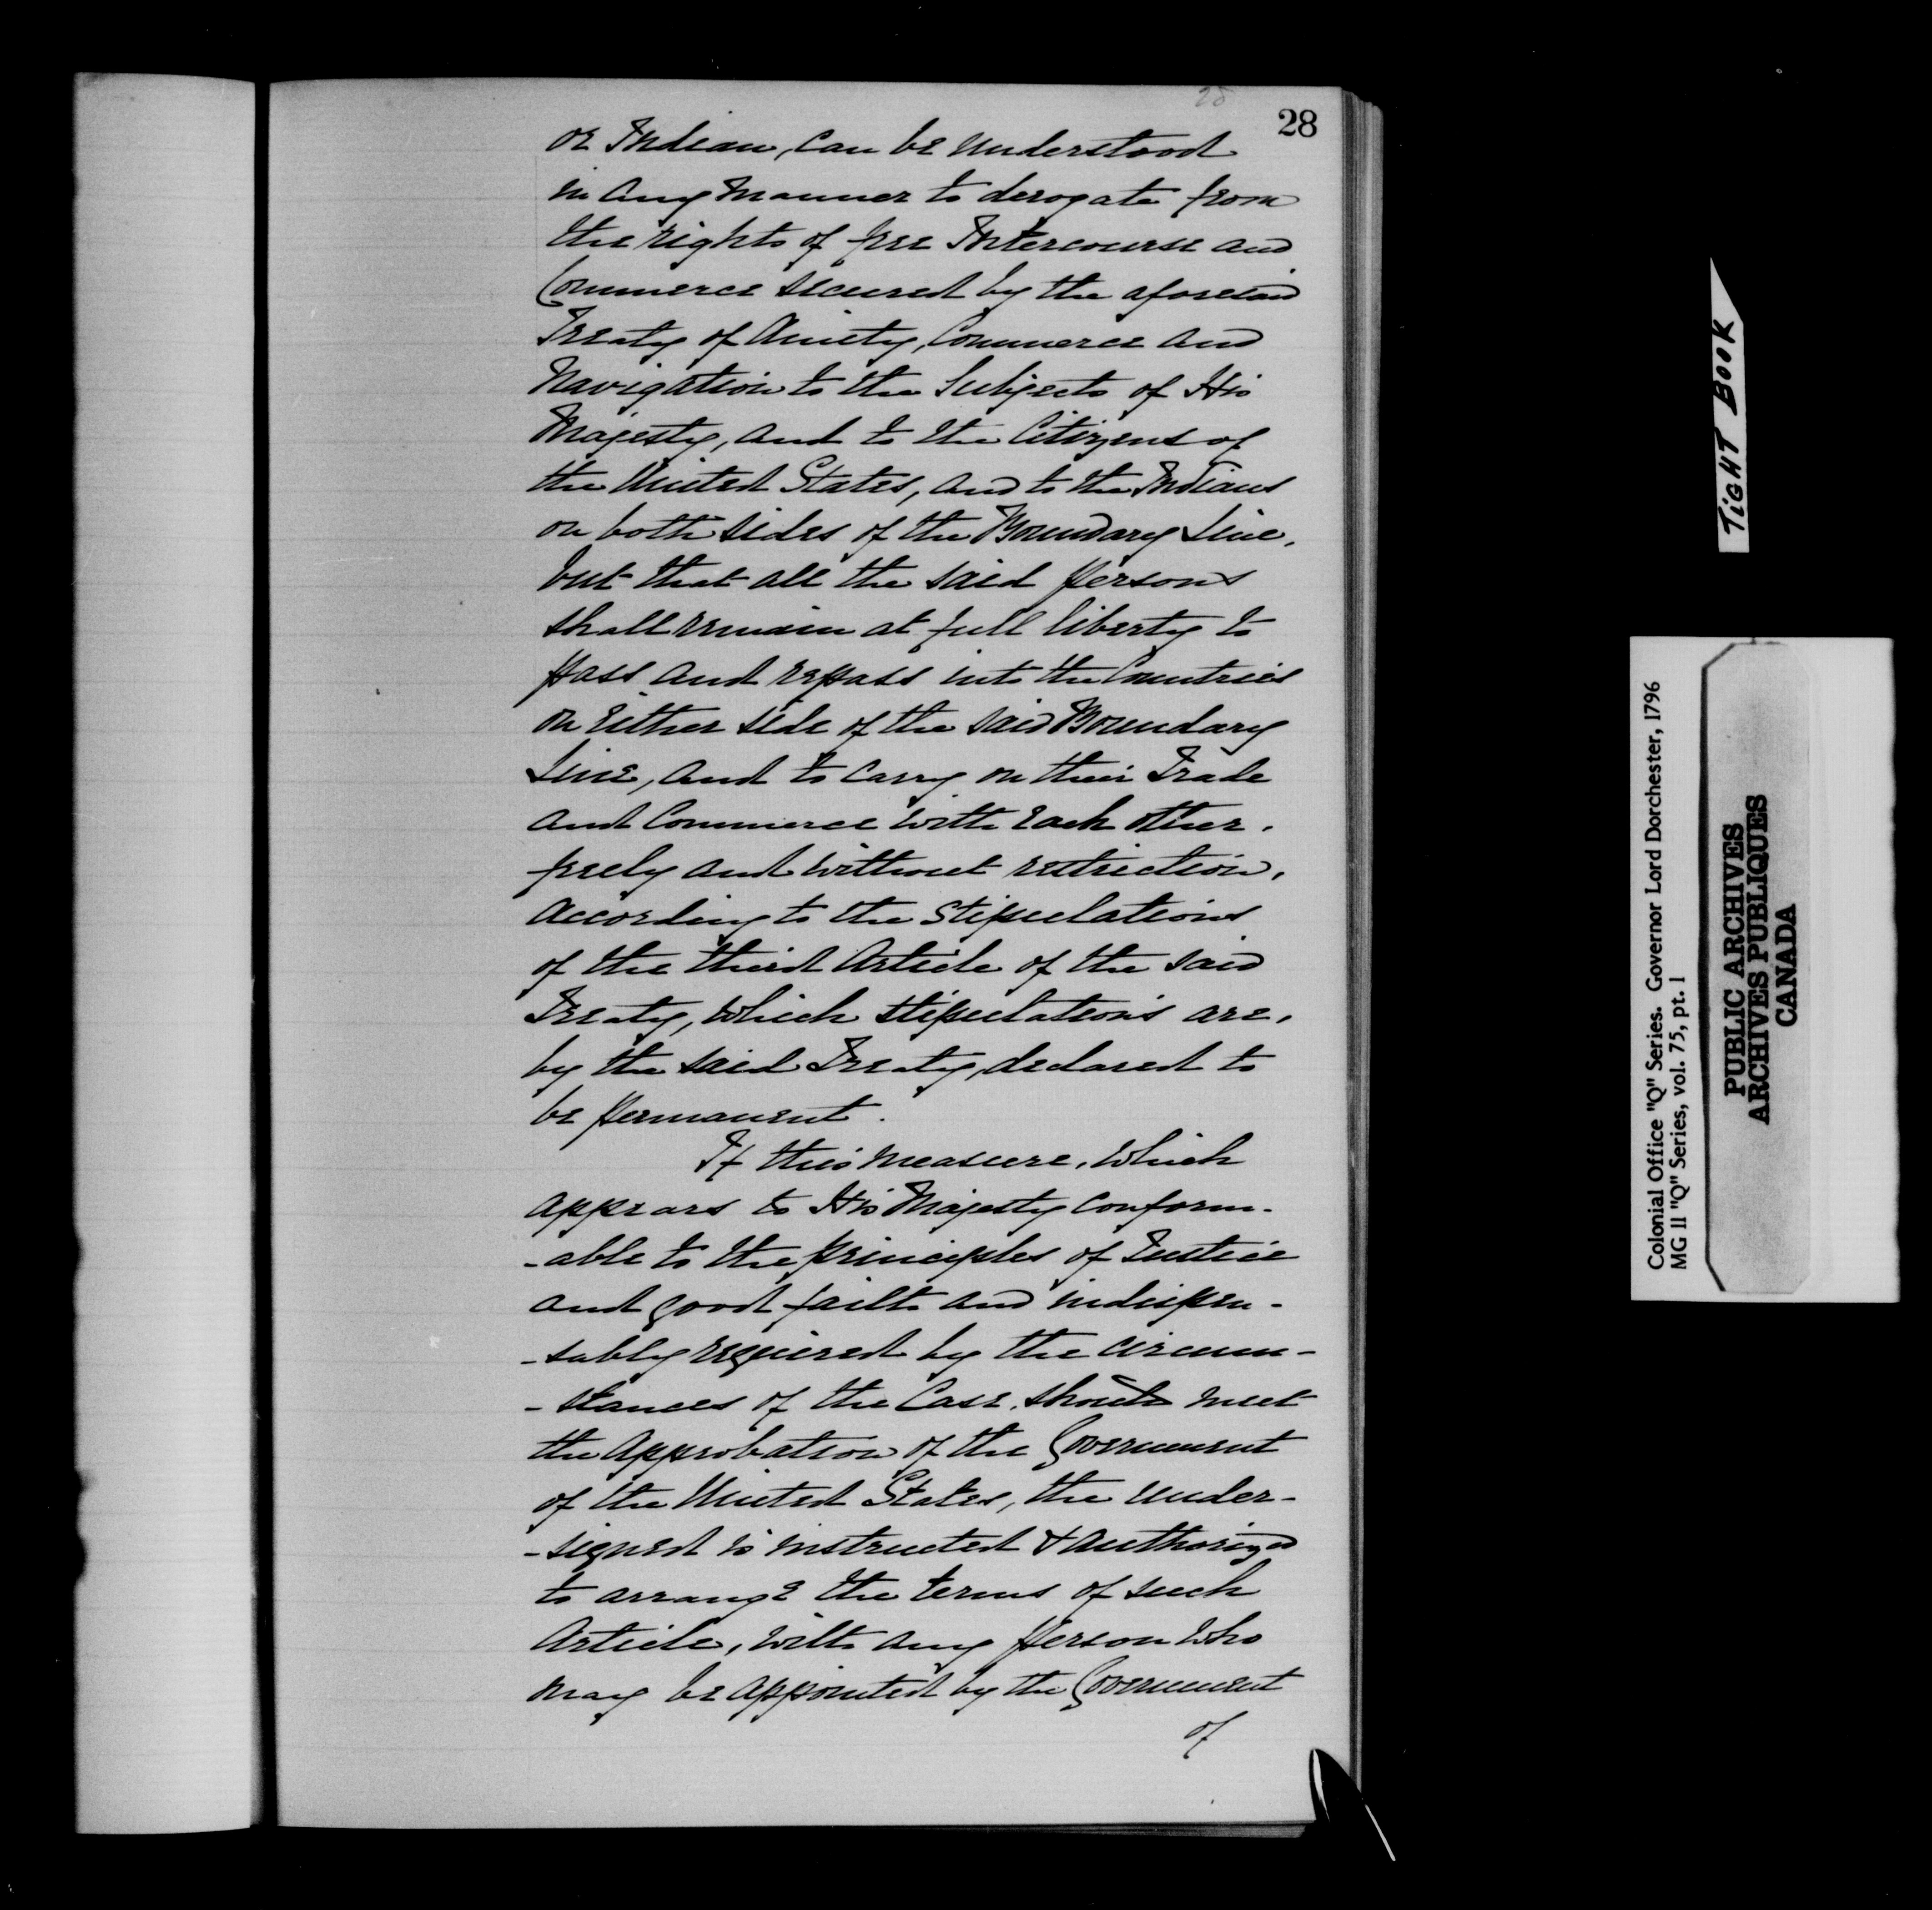 28
28
or Indian, can be understood
in any manner to derogate from
the rights of free Intercourse and
Commerce secured by the aforesaid
Treaty of Amity, Commerce and
Navigation to the Subjects of His
Majesty, and to the Citizens of
the United States, and to the Indians
on both sides of the Boundary Line,
but that all the said persons
shall remain at full liberty to
pass and repass into the Countries
on either side of the said Boundary
Line, and to carry on their Trade
and Commerce with each other,
freely and without restriction,
according to the stipulations
of the third Article of the said
Treaty, which stipulations are,
by the said Treaty, declared to
be permanent.
If this measure, which
appears to His Majesty conform-
-able to the principles of Justice
and good faith and indispen-
-sably required by the circum-
-stances of the Case, should meet
the Approbation of the Government
of the United States, the under-
-signed is instructed & authorized
to arrange the terms of such
Article, with any person who
may be appointed by the Government
of
TIGHT BOOK
Colonial Office "Q" Series. Governor Lord Dorchester, 1796
MG 11 "Q" Series, vol. 75, pt. 1
PUBLIC ARCHIVES
ARCHIVES PUBLIQUES
CANADA